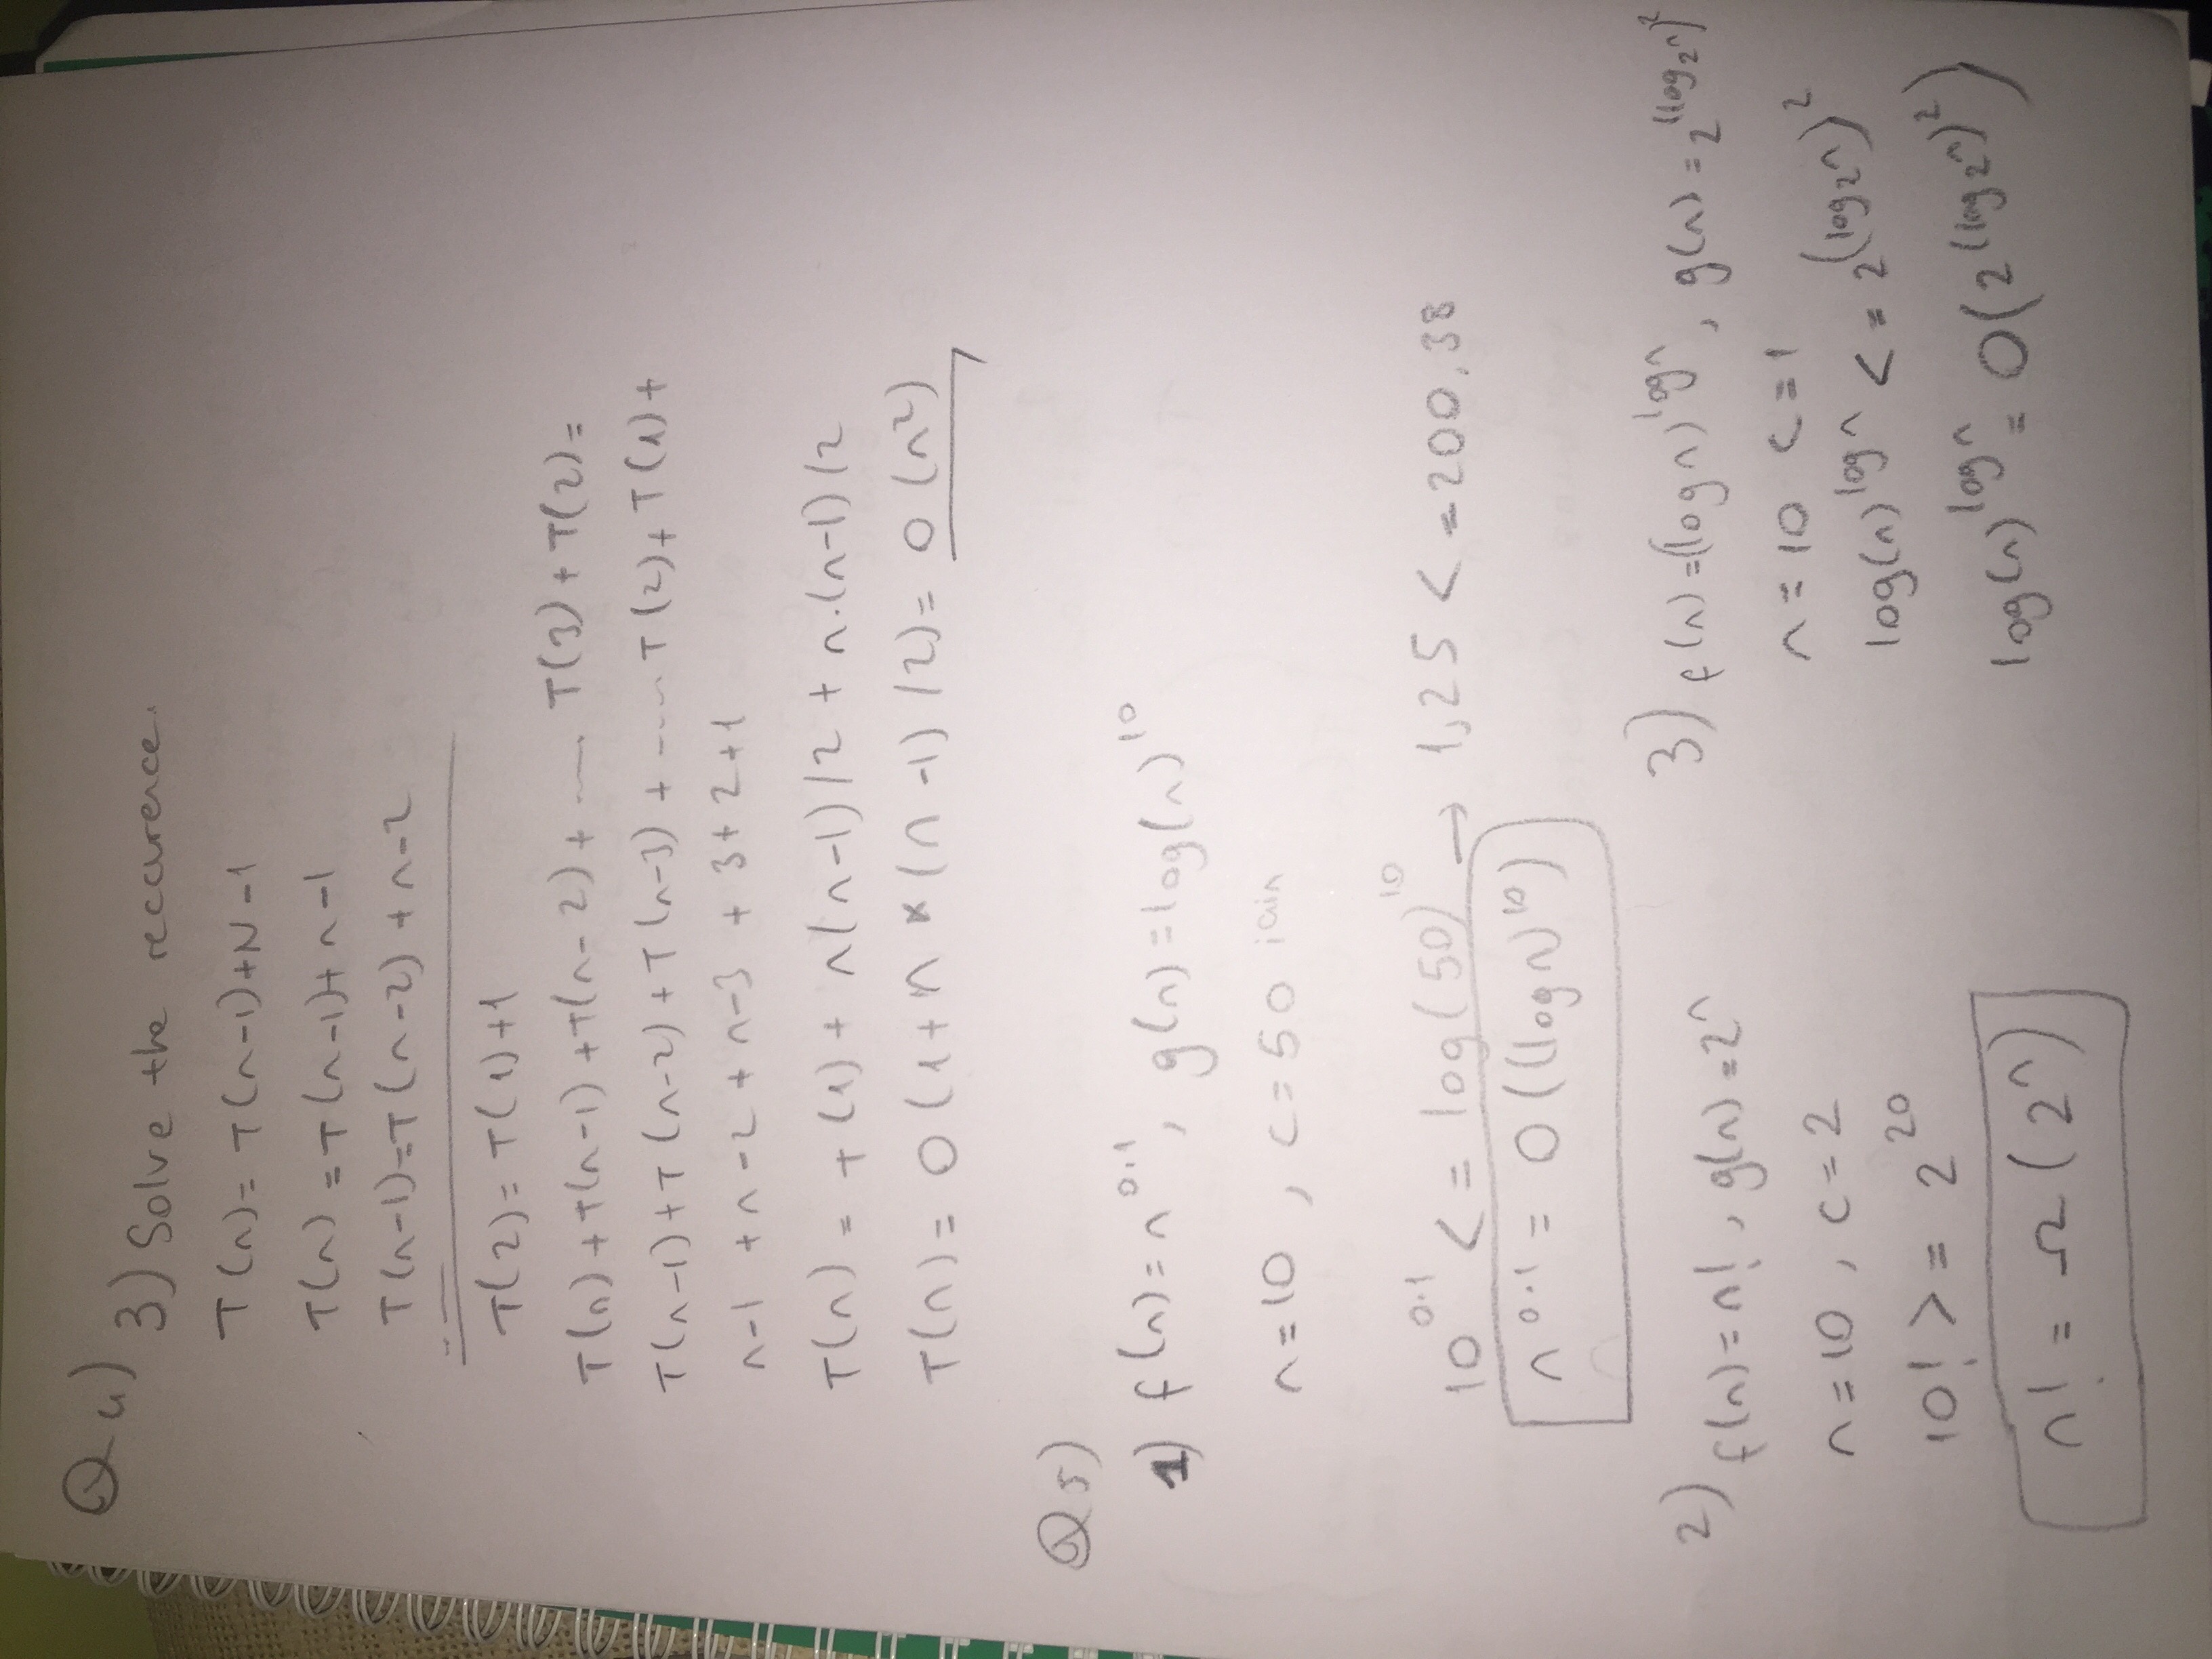 Q4)
3) Solve the reccurence.
T(n) = T(n-1)+N-1
T(n) = T(n-1)+ n-1
T(n-1)=T(n-2) + n-2
T(2) = T(1)+1
T(n) + T(n-1) + T(n-2) + ...... T(3) + T(2) =
T(n-1) + T(n-2) + T(n-3) + ...... T(2) + T(1) +
n-1 + n-2 + n-3 + 3+2+1
T(n) = T(1) + n(n-1)/2 + n.(n-1)/2
T(n) = O(1+n*(n-1)/2) = O(n²)
Q5)
1) f(n) = n^0.1, g(n) = log(n)^10
n = 10, c = 50 için
10^0.1 <= log(50)^10 → 1,25 <= 200,38
n^0.1 = O((logn)^10)
2) f(n) = n!, g(n) = 2^n
n = 10, c = 2
10! >= 2^20
n! = Ω(2^n)
3) f(n) = (logn)^logn, g(n) = 2^(log₂n)²
n = 10 c = 1
log(n)^logn <= 2^(log₂n)²
log(n)^logn = O(2^(log₂n)²)